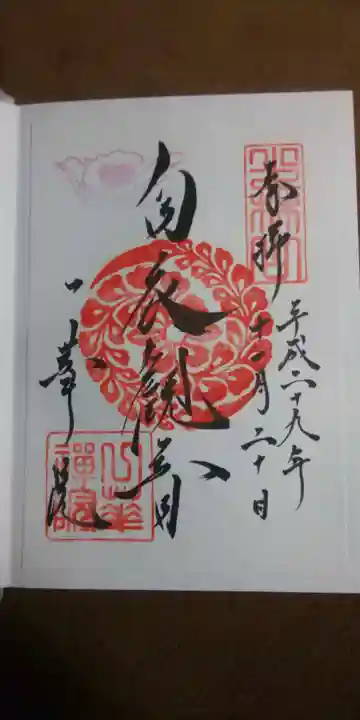 奉拝
平成二十九年
十一月二十日
白衣観音
一華院